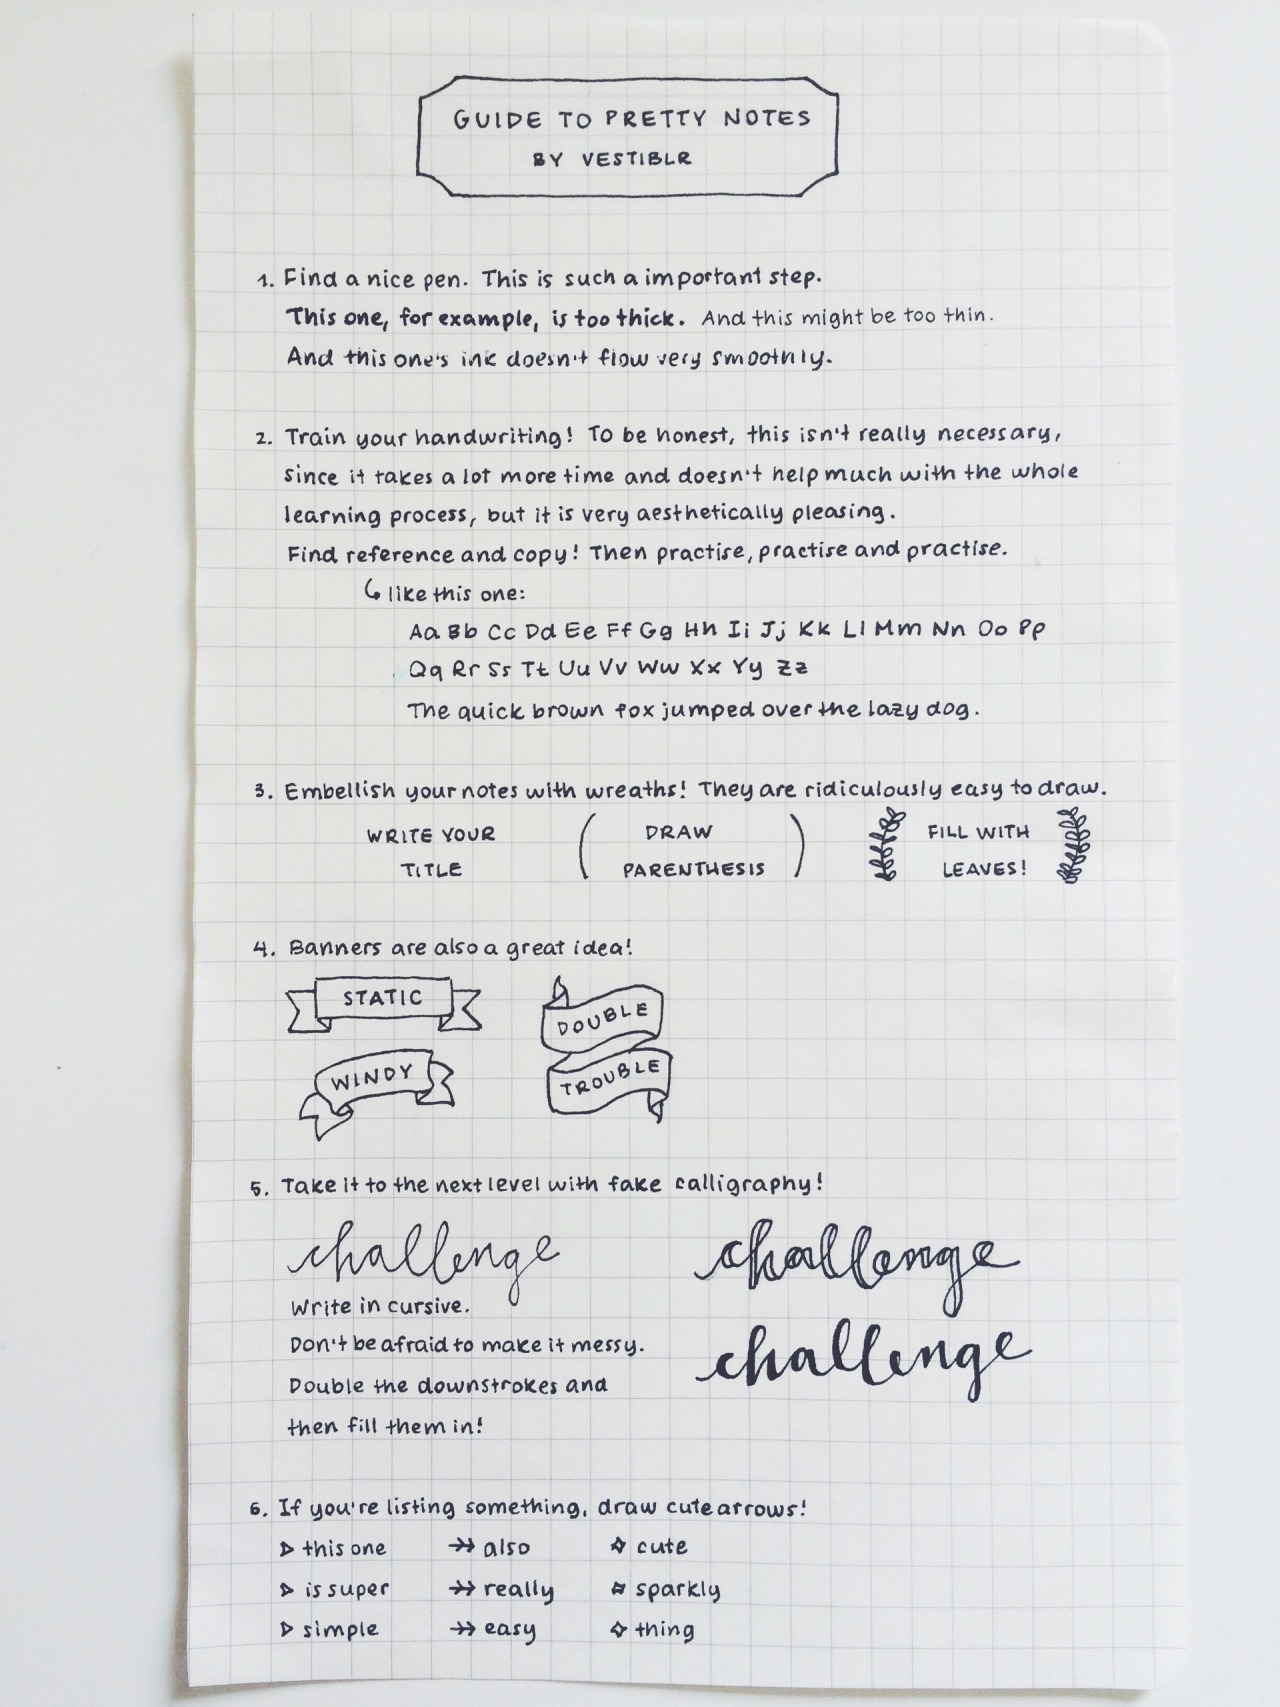 GUIDE TO PRETTY NOTES
BY VESTIBLR
1. Find a nice pen. This is such a important step.
This one, for example, is too thick. And this might be too thin.
And this one's ink doesn't flow very smoothly.
2. Train your handwriting! To be honest, this isn't really necessary,
since it takes a lot more time and doesn't help much with the whole
learning process, but it is very aesthetically pleasing.
Find reference and copy! Then practise, practise and practise.
like this one:
Aa Bb Cc Dd Ee Ff Gg Hh Ii Jj Kk Ll Mm Nn Oo Pp
Qq Rr Ss Tt Uu Vv Ww Xx Yy Zz
The quick brown fox jumped over the lazy dog.
3. Embellish your notes with wreaths! They are ridiculously easy to draw.
WRITE YOUR
TITLE
( DRAW )
PARENTHESIS
FILL WITH
LEAVES!
4. Banners are also a great idea!
STATIC
WINDY
DOUBLE
TROUBLE
5. Take it to the next level with fake calligraphy!
challenge
Write in cursive.
Don't be afraid to make it messy.
Double the downstrokes and
then fill them in!
challenge
challenge
6. If you're listing something, draw cute arrows!
▷ this one
▷ is super
▷ simple
↠ also
↠ really
↠ easy
✧ cute
✧ sparkly
✧ thing